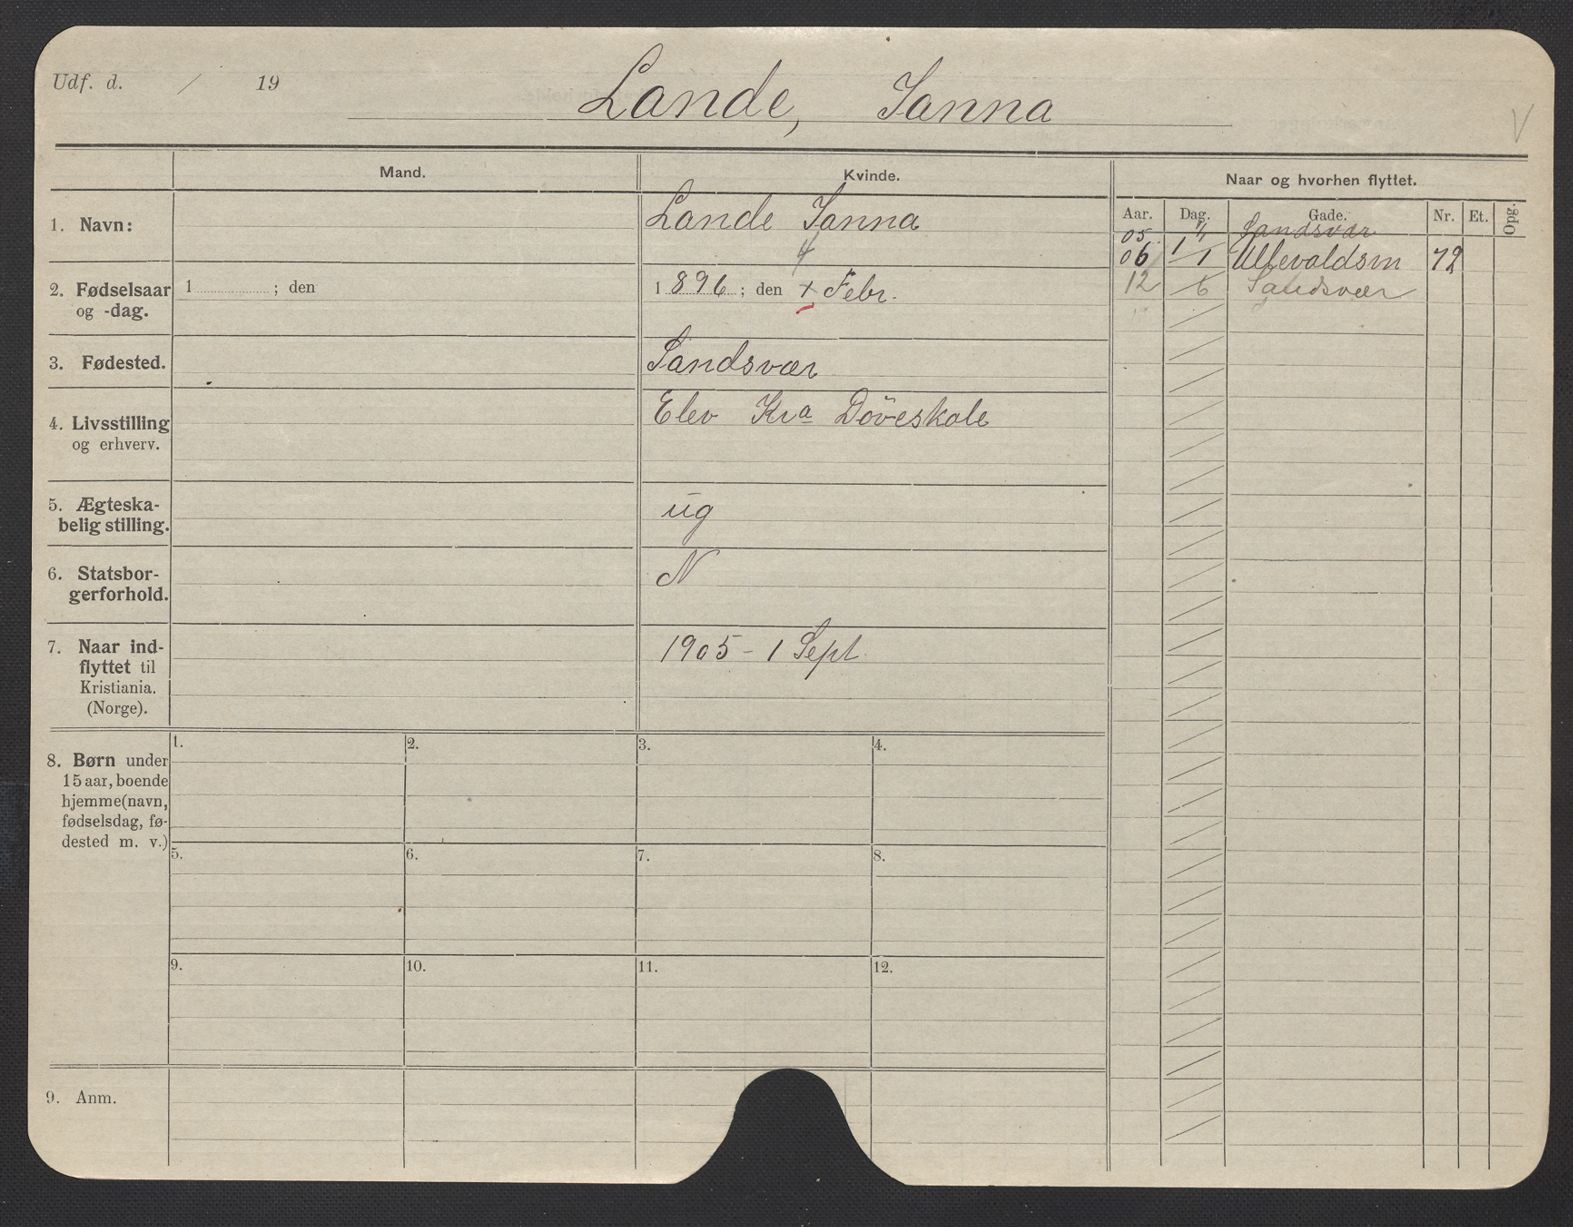 Udf. d. / 19
Lande, Janna
V
Mand.
Kvinde.
Naar og hvorhen flyttet.
Aar. Dag. Gade. Nr. Et. Opg.
1. Navn:
Lande Janna
05 Sandsvær
06 1/1 Ullevoldsvn 72
12 /6 Sandsvær
2. Fødselsaar
og -dag.
1 ; den
4
1896; den Febr.
3. Fødested.
Sandsvær
4. Livsstilling
og erhverv.
Elev Kra Döveskole
5. Ægteska-
belig stilling.
ug
6. Statsbor-
gerforhold.
N
7. Naar ind-
flyttet til
Kristiania.
(Norge).
1905 - 1 Sept.
8. Børn under
15 aar, boende
hjemme (navn,
fødselsdag, fø-
dested m. v.)
1. 2. 3. 4.
5. 6. 7. 8.
9. 10. 11. 12.
9. Anm.